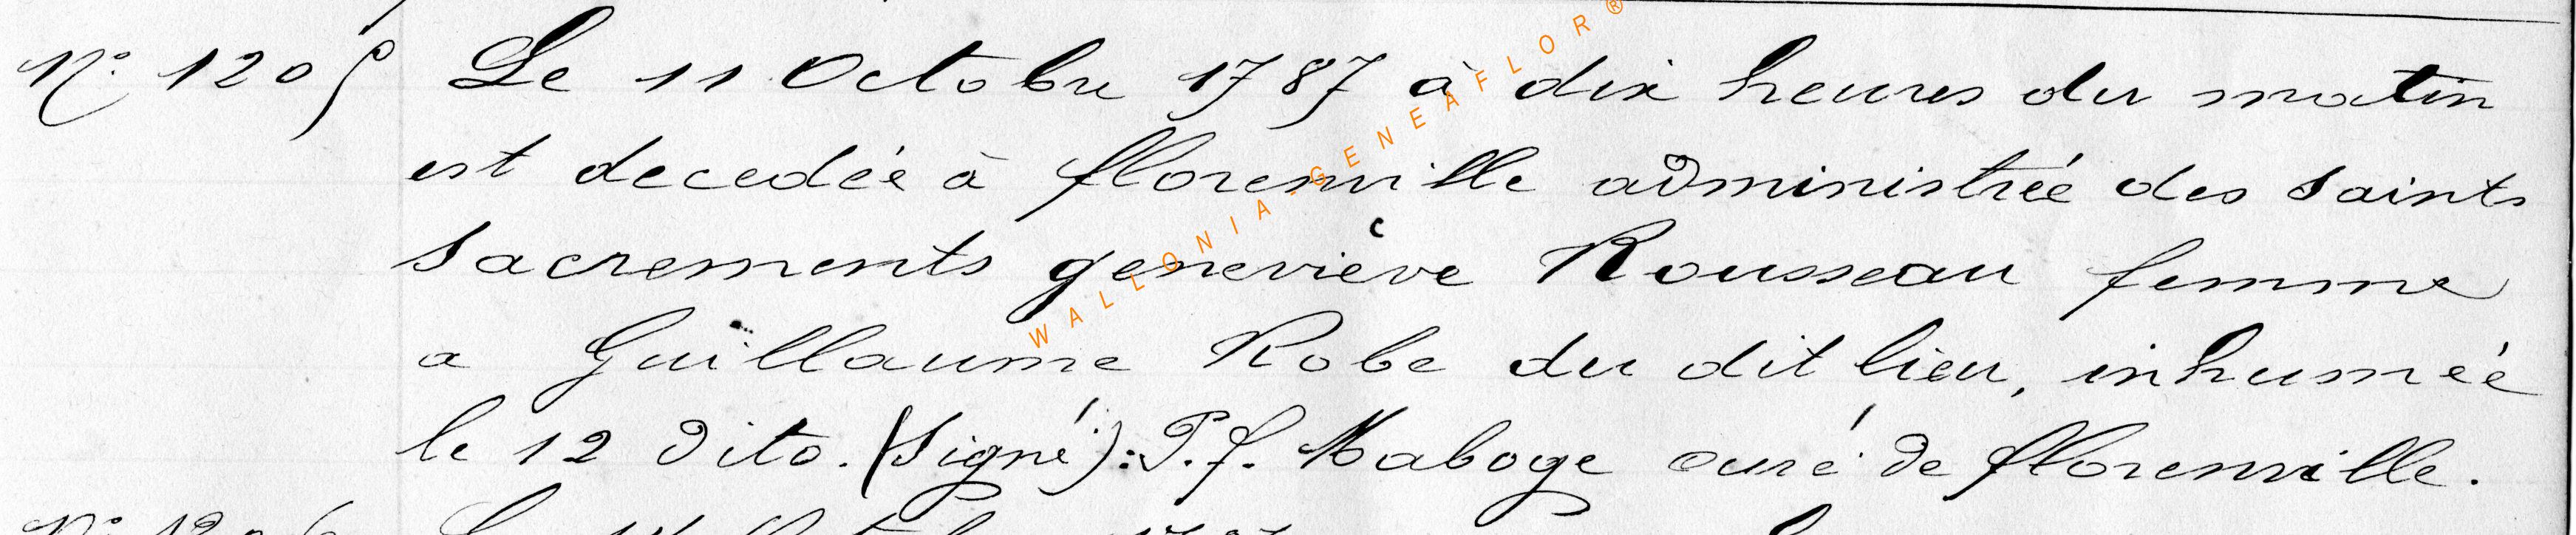 N° 1205 Le 11 Octobre 1787 à dix heures du matin
est decedée à florenville administrée des saints
sacrements geneviève Rousseau femme
a Guillaume Robe du dit lieu, inhumée
le 12 dito. (Signé): P.f. Maboge curé de florenville.
N° 1206
WALLONIA-GENEAFLOR®